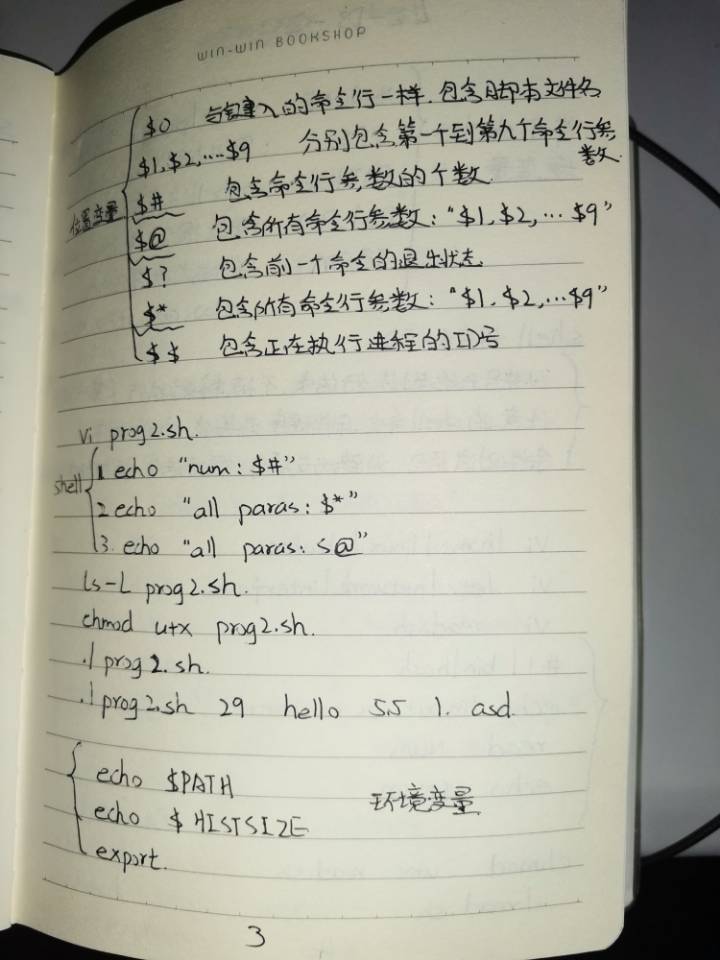 WIN-WIN BOOKSHOP
$0 与键入的命令行一样.包含脚本文件名
$1,$2,...$9 分别包含第一个到第九个命令行参数
位置变量
$# 包含命令行参数的个数
$@ 包含所有命令行参数:"$1,$2,...$9"
$? 包含前一个命令的退出状态
$* 包含所有命令行参数:"$1,$2,...$9"
$$ 包含正在执行进程的ID号
vi prog2.sh.
shell
1 echo "num: $#"
2 echo "all paras: $*"
3. echo "all paras: s@"
ls -L prog2.sh.
chmod u+x prog2.sh.
./prog2.sh.
./prog2.sh 29 hello 55 1. asd
echo $PATH
echo $HISTSIZE
环境变量
export.
3